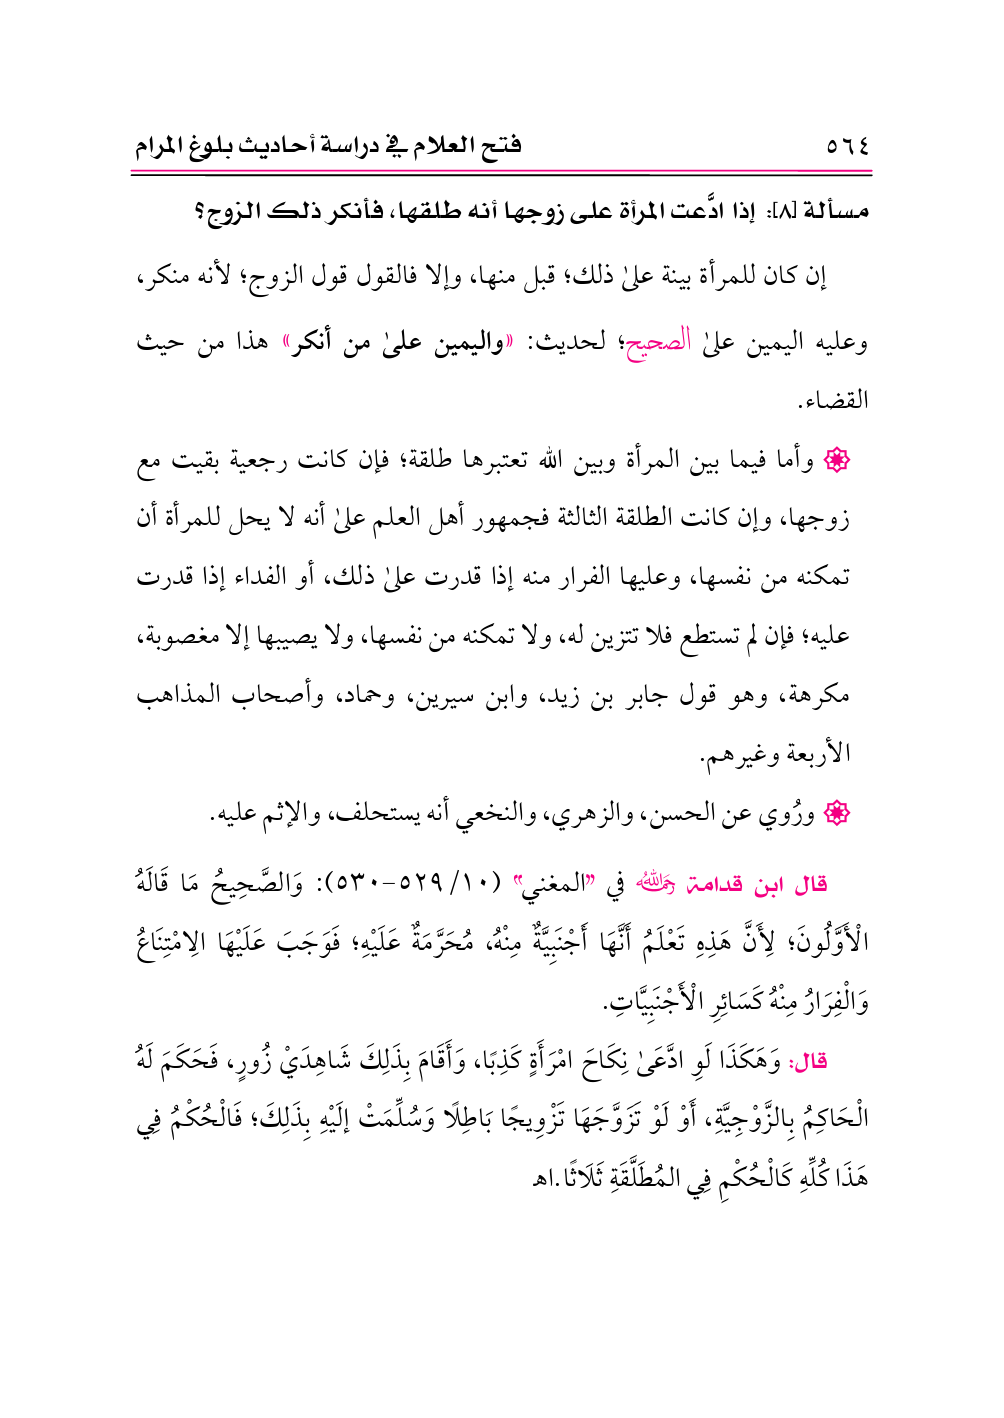 ٥٦٤ فتح العلام في دراسة أحاديث بلوغ المرام
مسألة [٨]: إذا ادَّعت المرأة على زوجها أنه طلقها، فأنكر ذلك الزوج؟
إن كان للمرأة بينة علىٰ ذلك؛ قبل منها، وإلا فالقول قول الزوج؛ لأنه منكر،
وعليه اليمين علىٰ الصحيح؛ لحديث: «واليمين علىٰ من أنكر» هذا من حيث
القضاء.
وأما فيما بين المرأة وبين الله تعتبرها طلقة؛ فإن كانت رجعية بقيت مع
زوجها، وإن كانت الطلقة الثالثة فجمهور أهل العلم علىٰ أنه لا يحل للمرأة أن
تمكنه من نفسها، وعليها الفرار منه إذا قدرت علىٰ ذلك، أو الفداء إذا قدرت
عليه؛ فإن لم تستطع فلا تتزين له، ولا تمكنه من نفسها، ولا يصيبها إلا مغصوبة،
مكرهة، وهو قول جابر بن زيد، وابن سيرين، وحماد، وأصحاب المذاهب
الأربعة وغيرهم.
ورُوي عن الحسن، والزهري، والنخعي أنه يستحلف، والإثم عليه.
قال ابن قدامة رحمه الله في "المغني" (١٠/ ٥٢٩-٥٣٠): وَالصَّحِيحُ مَا قَالَهُ
الْأَوَّلُونَ؛ لِأَنَّ هَذِهِ تَعْلَمُ أَنَّهَا أَجْنَبِيَّةٌ مِنْهُ، مُحَرَّمَةٌ عَلَيْهِ؛ فَوَجَبَ عَلَيْهَا الِامْتِنَاعُ
وَالْفِرَارُ مِنْهُ كَسَائِرِ الْأَجْنَبِيَّاتِ.
قال: وَهَكَذَا لَوِ ادَّعَىٰ نِكَاحَ امْرَأَةٍ كَذِبًا، وَأَقَامَ بِذَلِكَ شَاهِدَيْ زُورٍ، فَحَكَمَ لَهُ
الْحَاكِمُ بِالزَّوْجِيَّةِ، أَوْ لَوْ تَزَوَّجَهَا تَزْوِيجًا بَاطِلًا وَسُلِّمَتْ إلَيْهِ بِذَلِكَ؛ فَالْحُكْمُ فِي
هَذَا كُلِّهِ كَالْحُكْمِ فِي المُطَلَّقَةِ ثَلَاثًا.اهـ